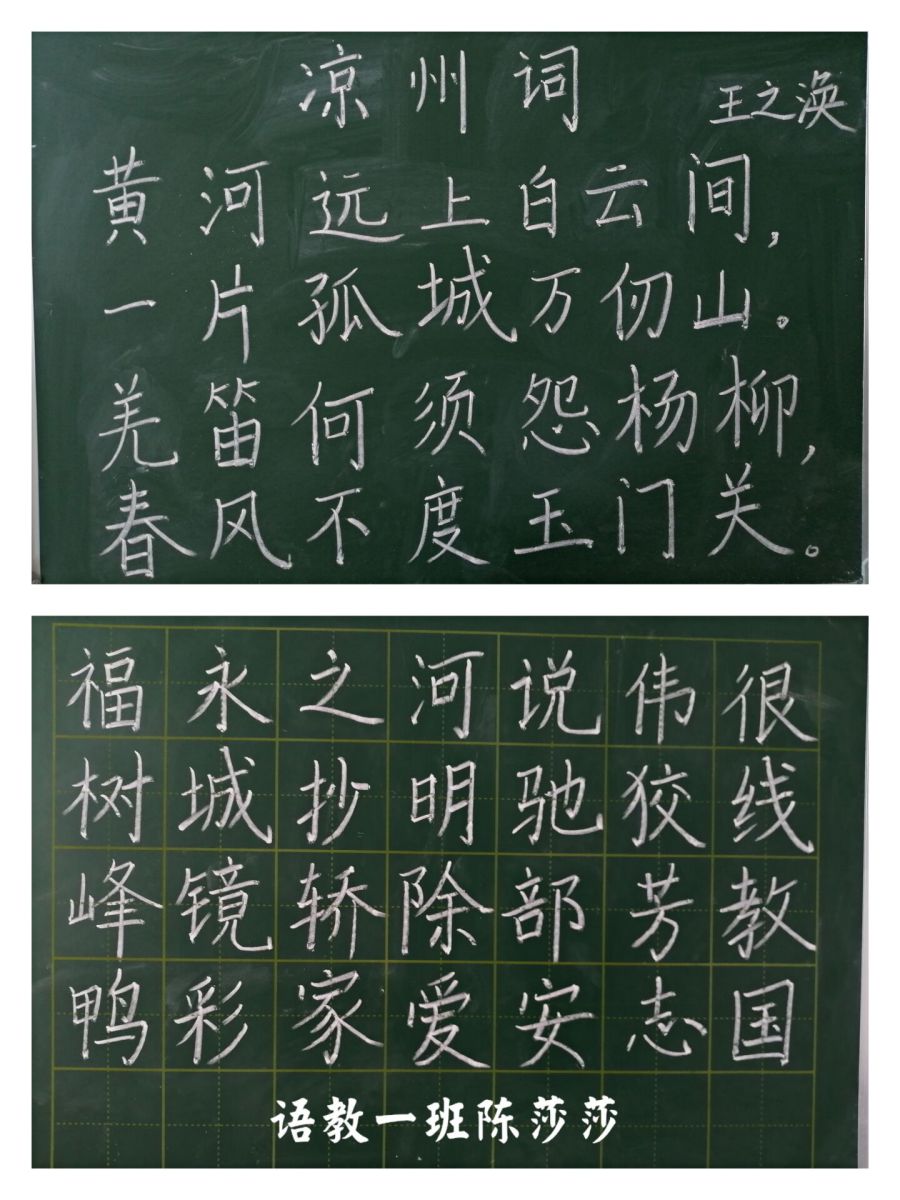 凉州词
王之涣
黄河远上白云间，
一片孤城万仞山。
羌笛何须怨杨柳，
春风不度玉门关。
福永之河说伟很
树城抄明驰狡线
峰镜轿除部芳教
鸭彩家爱安志国
语教一班陈莎莎